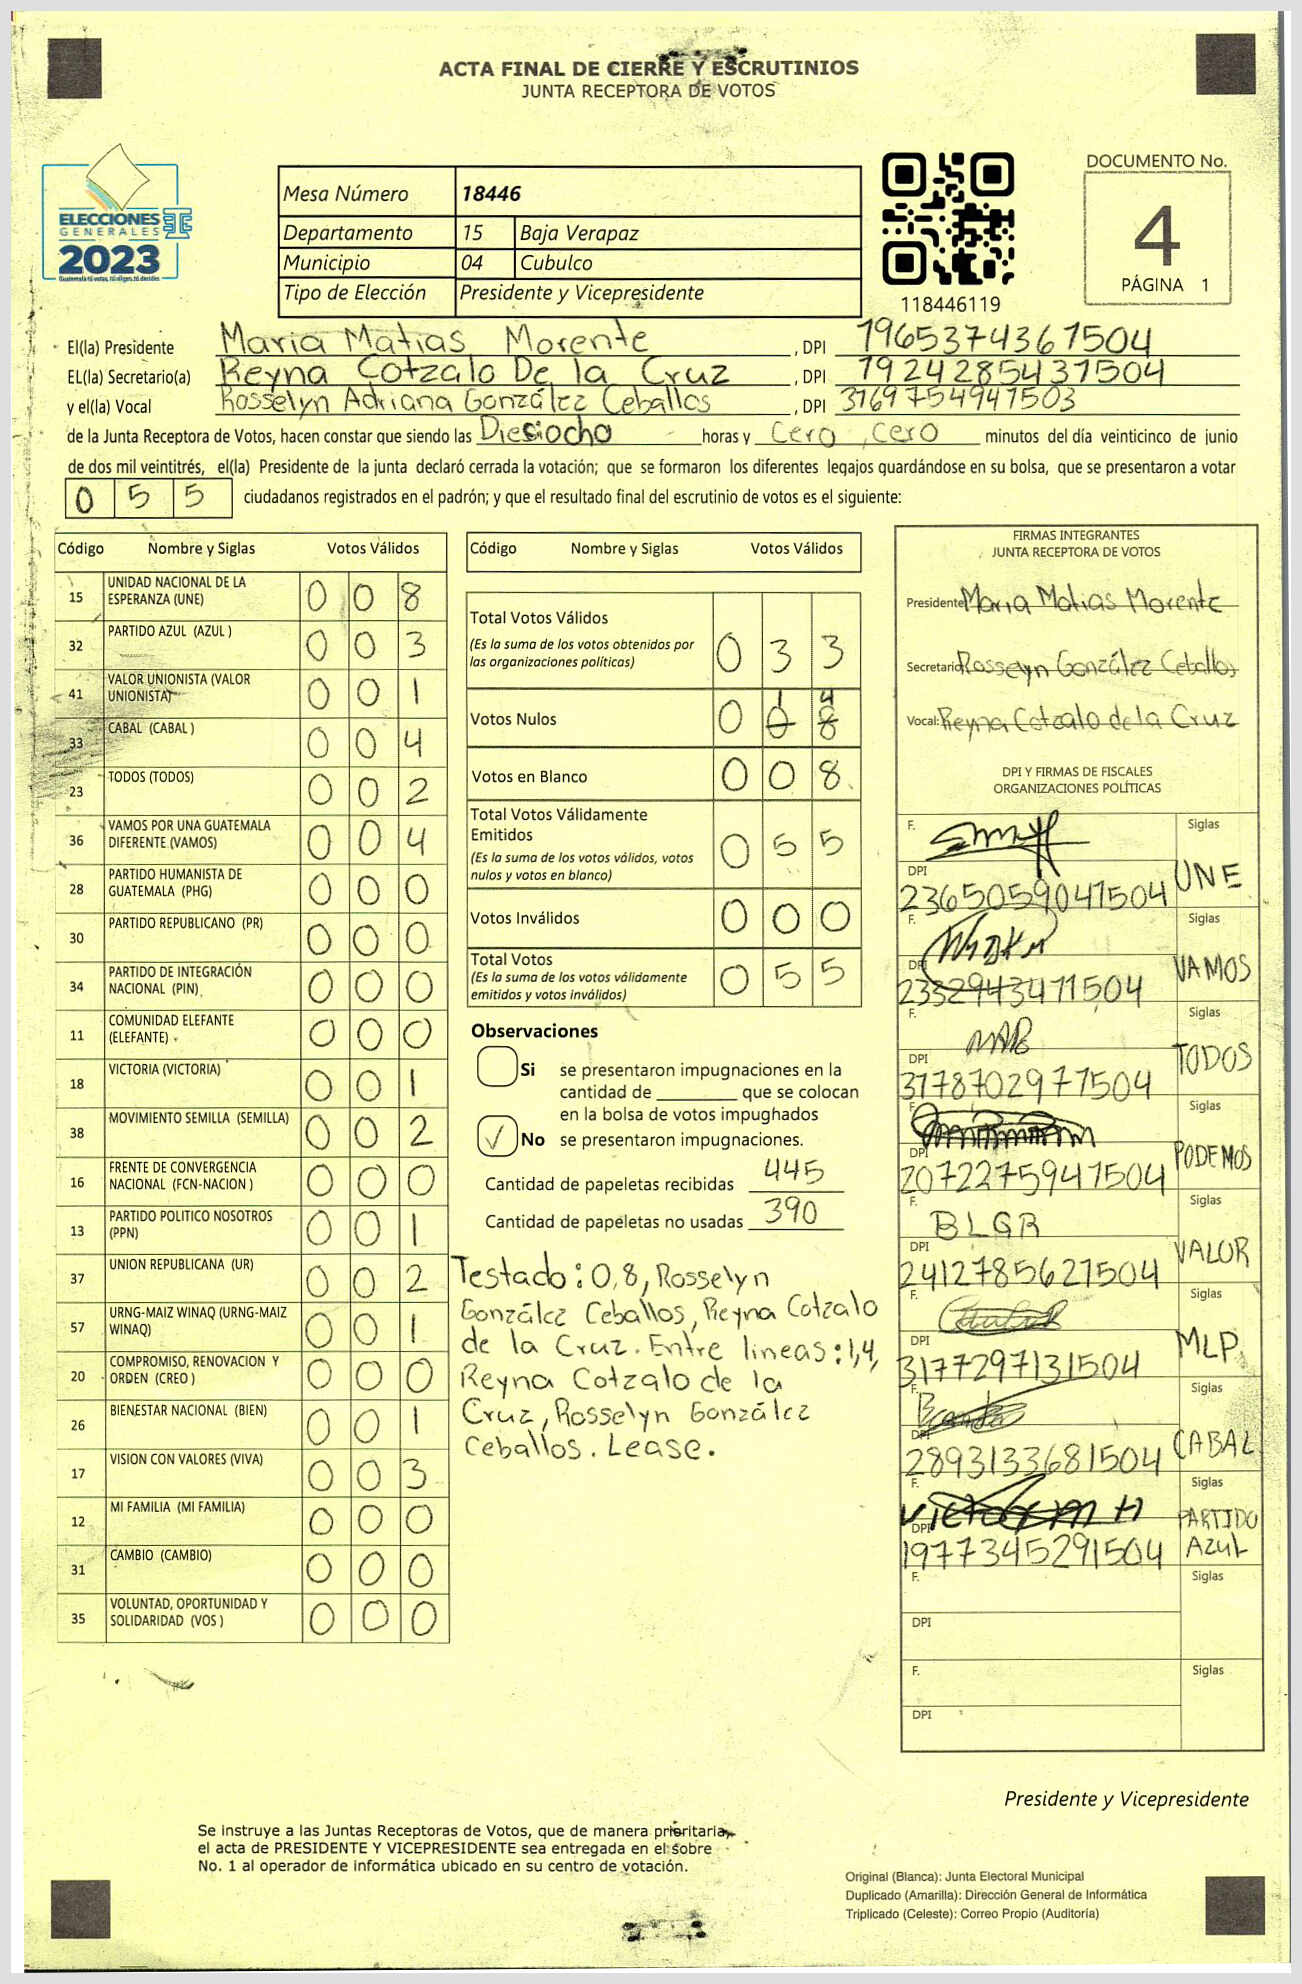 ACTA FINAL DE CIERRE Y ESCRUTINIOS
JUNTA RECEPTORA DE VOTOS
ELECCIONES
GENERALES
2023
Guatemala tú votas, tú eliges, tú decides
Mesa Número 18446
Departamento 15 Baja Verapaz
Municipio 04 Cubulco
Tipo de Elección Presidente y Vicepresidente
118446119
DOCUMENTO No.
4
PÁGINA 1
El(la) Presidente Maria Matias Morente , DPI 1965374367504
EL(la) Secretario(a) Reyna Cotzalo De la Cruz , DPI 1924285431504
y el(la) Vocal Rosselyn Adriana González Ceballos , DPI 3169754941503
de la Junta Receptora de Votos, hacen constar que siendo las Dieciocho horas y Cero , cero minutos del día veinticinco de junio
de dos mil veintitrés, el(la) Presidente de la junta declaró cerrada la votación; que se formaron los diferentes legajos guardándose en su bolsa, que se presentaron a votar
0 5 5 ciudadanos registrados en el padrón; y que el resultado final del escrutinio de votos es el siguiente:
Código Nombre y Siglas Votos Válidos
15 UNIDAD NACIONAL DE LA ESPERANZA (UNE) 0 0 8
32 PARTIDO AZUL (AZUL ) 0 0 3
41 VALOR UNIONISTA (VALOR UNIONISTA) 0 0 1
33 CABAL (CABAL ) 0 0 4
23 TODOS (TODOS) 0 0 2
36 VAMOS POR UNA GUATEMALA DIFERENTE (VAMOS) 0 0 4
28 PARTIDO HUMANISTA DE GUATEMALA (PHG) 0 0 0
30 PARTIDO REPUBLICANO (PR) 0 0 0
34 PARTIDO DE INTEGRACIÓN NACIONAL (PIN) 0 0 0
11 COMUNIDAD ELEFANTE (ELEFANTE) 0 0 0
18 VICTORIA (VICTORIA) 0 0 1
38 MOVIMIENTO SEMILLA (SEMILLA) 0 0 2
16 FRENTE DE CONVERGENCIA NACIONAL (FCN-NACION ) 0 0 0
13 PARTIDO POLITICO NOSOTROS (PPN) 0 0 1
37 UNION REPUBLICANA (UR) 0 0 2
57 URNG-MAIZ WINAQ (URNG-MAIZ WINAQ) 0 0 1
20 COMPROMISO, RENOVACION Y ORDEN (CREO ) 0 0 0
26 BIENESTAR NACIONAL (BIEN) 0 0 1
17 VISION CON VALORES (VIVA) 0 0 3
12 MI FAMILIA (MI FAMILIA) 0 0 0
31 CAMBIO (CAMBIO) 0 0 0
35 VOLUNTAD, OPORTUNIDAD Y SOLIDARIDAD (VOS ) 0 0 0
Código Nombre y Siglas Votos Válidos
Total Votos Válidos 0 3 3
(Es la suma de los votos obtenidos por
las organizaciones políticas)
1 4
Votos Nulos 0 0 8
Votos en Blanco 0 0 8
Total Votos Válidamente
Emitidos 0 5 5
(Es la suma de los votos válidos, votos
nulos y votos en blanco)
Votos Inválidos 0 0 0
Total Votos 0 5 5
(Es la suma de los votos válidamente
emitidos y votos inválidos)
Observaciones
Si se presentaron impugnaciones en la
cantidad de ________ que se colocan
en la bolsa de votos impughados
✓ No se presentaron impugnaciones.
Cantidad de papeletas recibidas 445
Cantidad de papeletas no usadas 390
Testado: 0,8, Rosselyn
González Ceballos, Reyna Cotzalo
de la Cruz. Entre lineas: 1,4,
Reyna Cotzalo de la
Cruz, Rosselyn González
Ceballos. Lease.
FIRMAS INTEGRANTES
JUNTA RECEPTORA DE VOTOS
Presidente Maria Matias Morente
Secretario Rosselyn González Ceballos
Vocal: Reyna Cotzalo de la Cruz
DPI Y FIRMAS DE FISCALES
ORGANIZACIONES POLÍTICAS
F. Siglas
DPI 2365059041504 UNE
F. Siglas
DPI 2332943471504 VAMOS
F. Siglas
DPI 3178702977504 TODOS
F. Siglas
DPI 2072275941504 PODEMOS
F. BLGR Siglas
DPI 2412785621504 VALOR
F. Siglas
DPI 3177297131504 MLP.
F. Siglas
DPI 2893133681504 CABAL
F. Siglas
DPI 1977345291504 PARTIDO AZUL
F. Siglas
DPI
F. Siglas
DPI
Presidente y Vicepresidente
Se instruye a las Juntas Receptoras de Votos, que de manera prioritaria,
el acta de PRESIDENTE Y VICEPRESIDENTE sea entregada en el sobre
No. 1 al operador de informática ubicado en su centro de votación.
Original (Blanca): Junta Electoral Municipal
Duplicado (Amarilla): Dirección General de Informática
Triplicado (Celeste): Correo Propio (Auditoría)